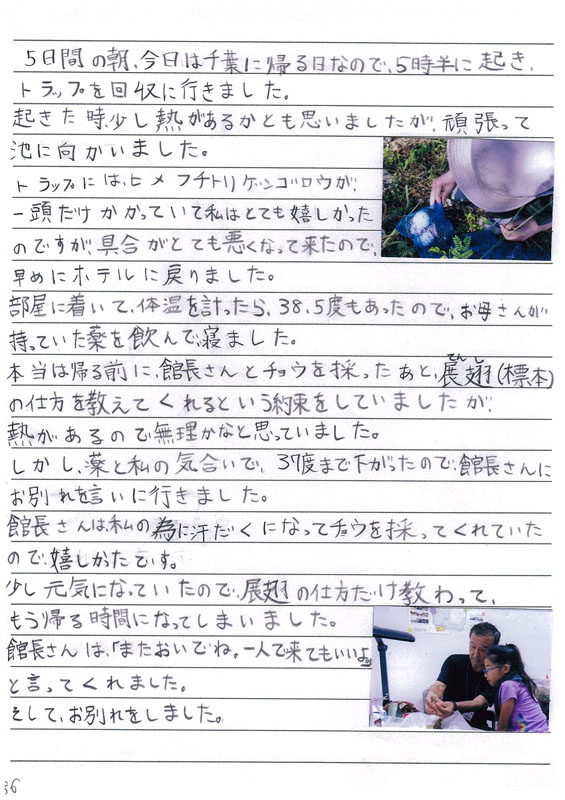 5日間の朝、今日は千葉に帰る日なので、5時半に起き、
トラップを回収に行きました。
起きた時、少し熱があるかとも思いましたが、頑張って
池に向かいました。
トラップには、ヒメフチトリゲンゴロウが、
一頭だけかかっていて私はとても嬉しかった
のですが、具合がとても悪くなって来たので、
早めにホテルに戻りました。
部屋に着いて、体温を計ったら、38.5度もあったので、お母さんが
持っていた薬を飲んで、寝ました。
本当は帰る前に、館長さんとチョウを採ったあと、展翅(標本)
の仕方を教えてくれるという約束をしていましたが、
熱があるので無理かなと思っていました。
しかし、薬と私の気合いで、37度まで下がったので、館長さんに
お別れを言いに行きました。
館長さんは私の為に汗だくになってチョウを採ってくれていた
ので、嬉しかったです。
少し元気になっていたので、展翅の仕方だけ教わって、
もう帰る時間になってしまいました。
館長さんは、「またおいでね。一人で来てもいいよ」
と言ってくれました。
そして、お別れをしました。
36